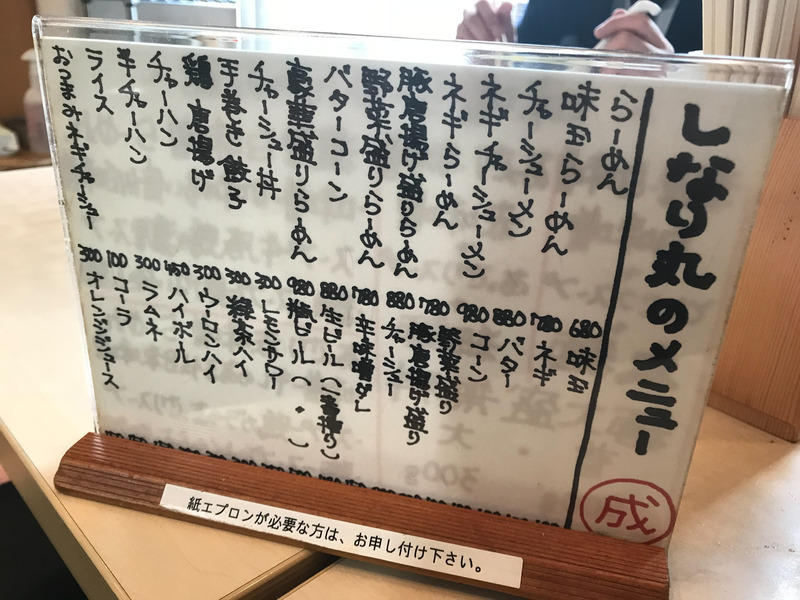 しなり丸のメニュー
成
らーめん 680
味玉らーめん 780
チャーシューメン 880
ネギチャーシューメン 980
ネギらーめん 780
豚唐揚げ盛りらーめん 880
野菜盛りらーめん 780
バターコーン 880
豪華盛りらーめん 980
チャーシュー丼 300
手巻き餃子 300
鶏唐揚げ 300
チャーハン 450
半チャーハン 300
ライス 100
おつまみネギチャーシュー 300
味玉
ネギ
バター
コーン
野菜盛り
豚唐揚げ盛り
チャーシュー
辛味噌
生ビール(一番搾り)
瓶ビール(〃)
レモンサワー
緑茶ハイ
ウーロンハイ
ハイボール
ラムネ
コーラ
オレンジジュース
紙エプロンが必要な方は、お申し付け下さい。